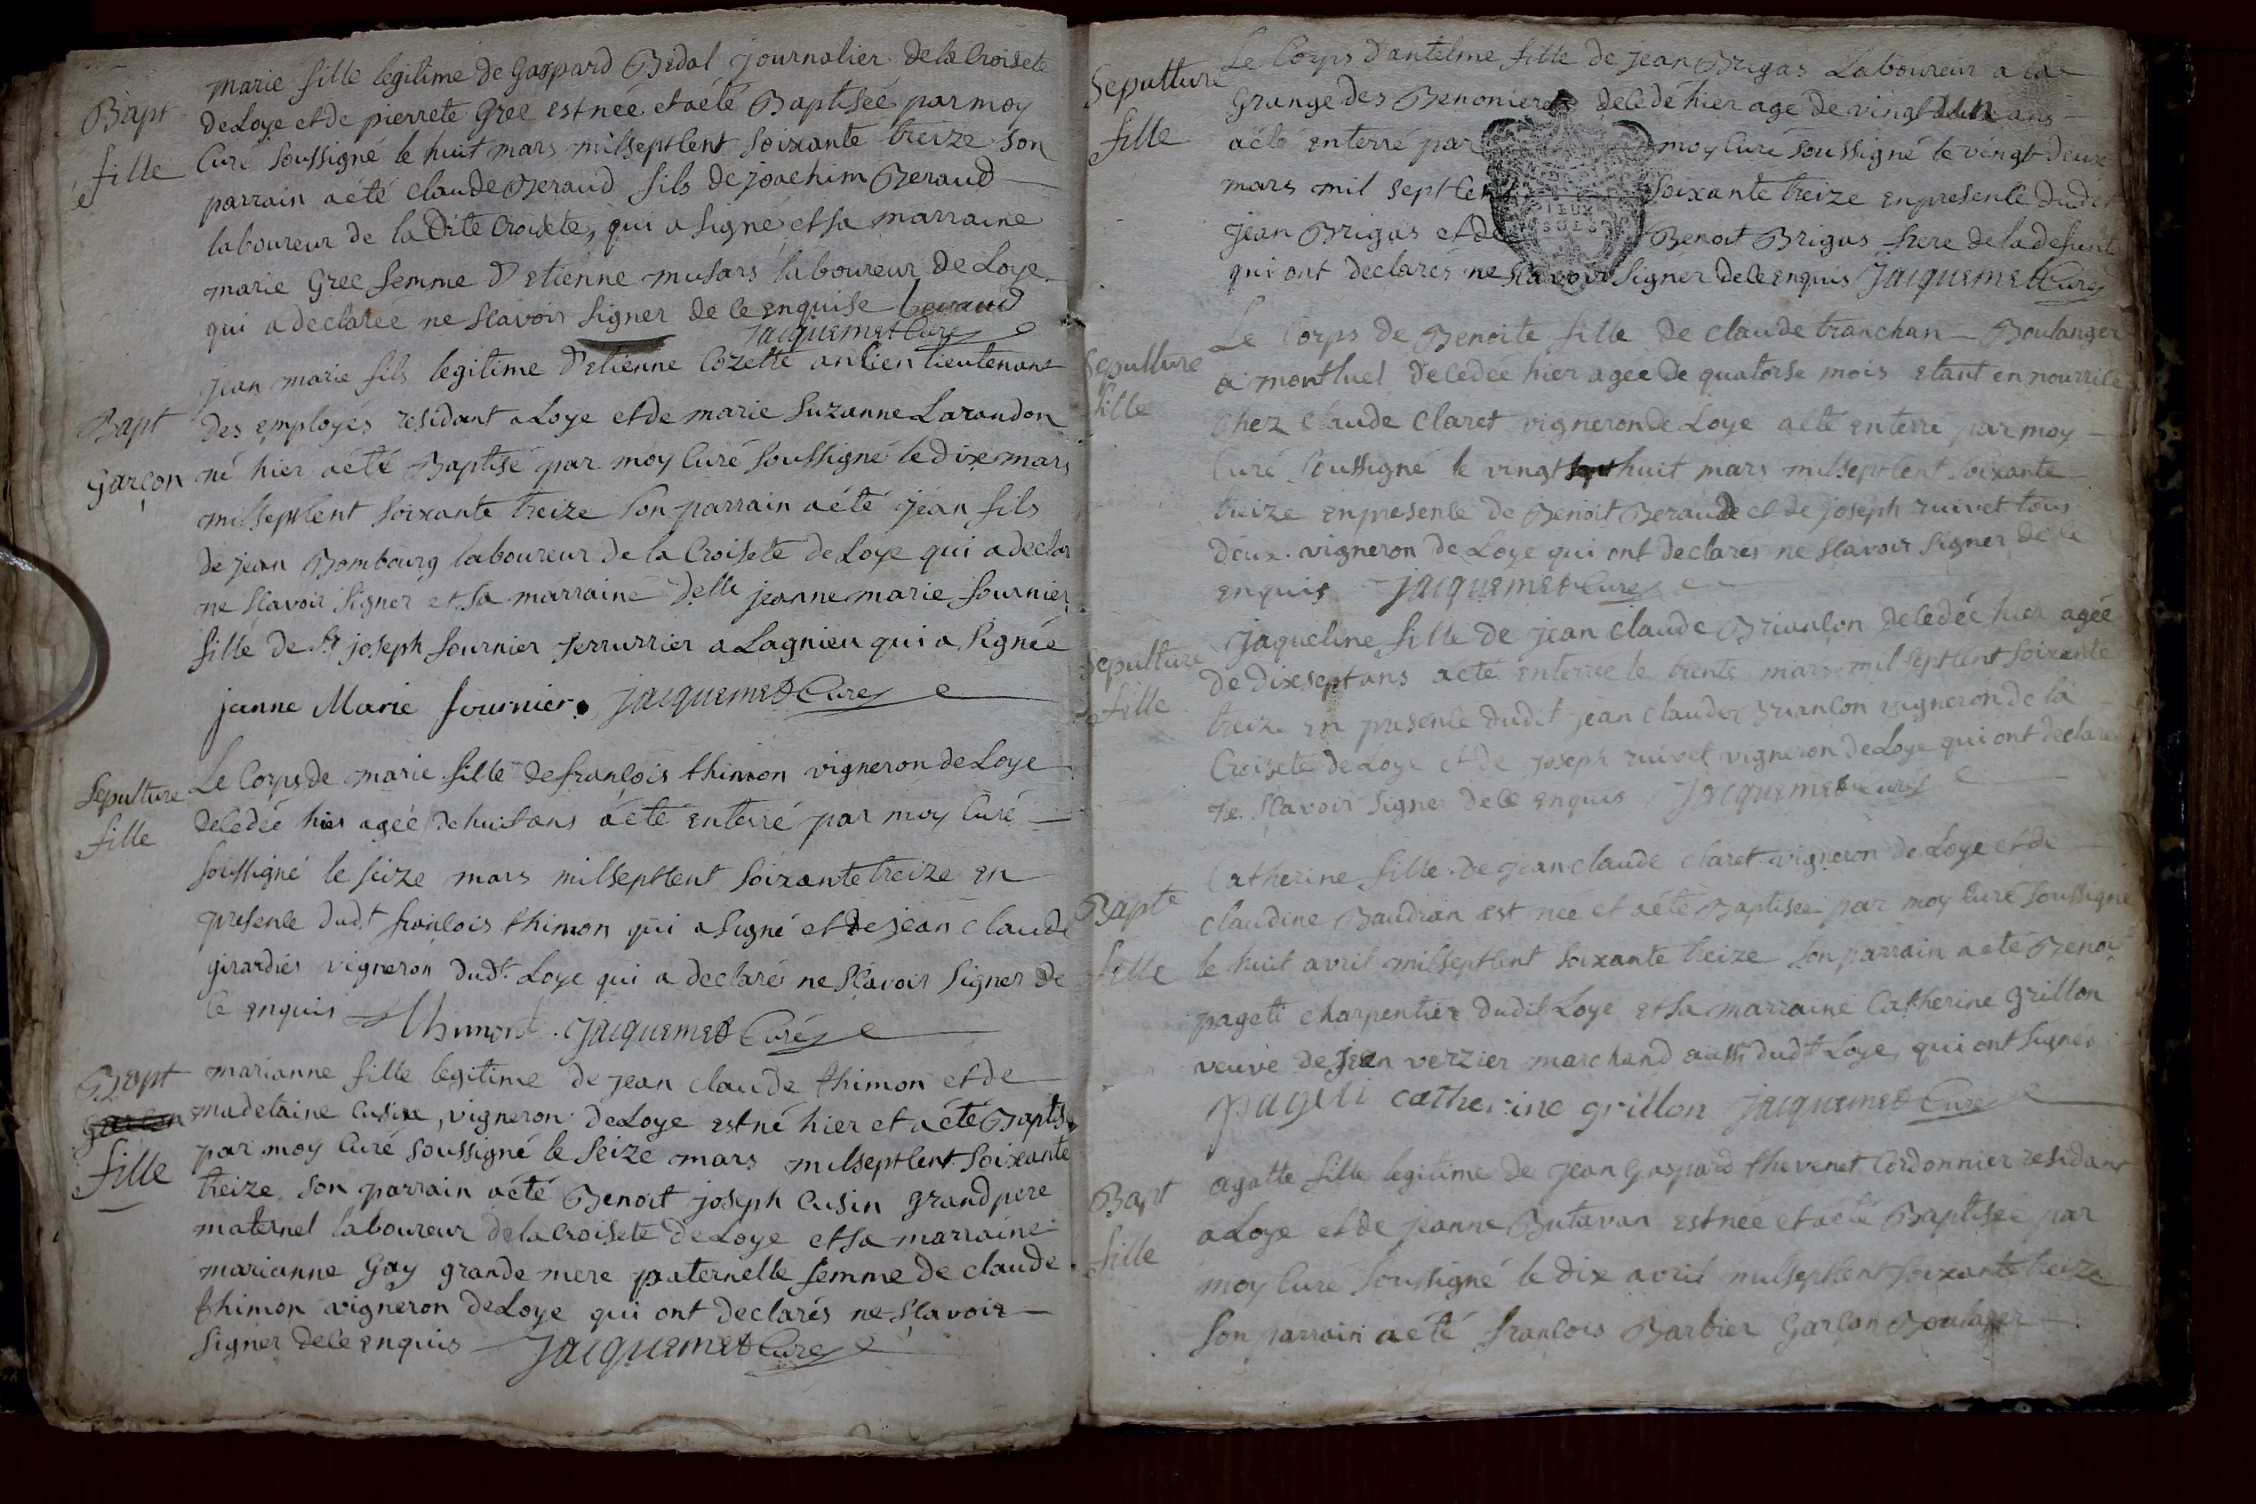 Bapt
fille
marie fille legitime de Gaspard Bidal journalier de la Croisete
de Loye et de pierrete Gree est neé et a eté Baptiseé par moy
Curé soussigné le huit mars mil sept cent soixante treize son
parrain a eté claude Beraud fils de joachim Beraud
laboureur de la Dite Croisete, qui a signé et sa marraine
marie Gree femme d'etienne musars laboureur de Loye
qui a declareé ne scavoir signer de ce enquise beraud
jacquemet Curé
Bapt
Garçon
jean marie fils legitime d'etienne Cozette ancien lieutenant
des employés residant a Loye et de marie suzanne Larandon
né hier a eté Baptisé par moy Curé soussigné le dix mars
mil sept cent soixante treize son parrain a eté jean fils
de jean Bombourg laboureur de la Croisete de Loye qui a declar
ne scavoir signer et sa marraine delle jeanne marie fournier
fille de Sr joseph fournier serrurrier a Lagnieu qui a signée
janne Marie fournier jacquemet Curé
Sepulture
fille
Le Corps de marie fille de françois thimon vigneron de Loye
decedeé hier ageé de huit ans a eté enterré par moy Curé
soussigné le seize mars mil sept cent soixante treize en
presence dudt françois thimon qui a signé et de jean claude
girardies vigneron dudt Loye qui a declarés ne scavoir signer de
ce enquis thimont jacquemet Curé
Bapt
Garçon
fille
marianne fille legitime de jean claude thimon et de
madelaine Cusin, vigneron de Loye est né hier et a eté Baptis
par moy Curé soussigné le seize mars mil sept cent soixante
treize son parrain a eté Benoit joseph Cusin grand pere
maternel laboureur de la Croisete de Loye et sa marraine
marianne Gay grande mere paternelle femme de claude
thimon vigneron de Loye qui ont declarés ne scavoir
signer de ce enquis jacquemet Curé
Sepulture
fille
Le Corps d'antelme fille de jean Brigas Laboureur a la
Grange des Benonieres decedé hier age de vingt ans
a eté enterré par moy Curé soussigné le vingt deux
mars mil sept cent soixante treize en presence dudit
jean Brigas et de Benoit Brigas frere de la defunte
qui ont declarés ne scavoir signer de ce enquis jacquemet Curé
Sepulture
fille
Le Corps de Benoite fille de claude tranchan Boulanger
a montluel decedeé hier ageé de quatorse mois etant en nourrice
chez claude claret vigneron de Loye a eté enterré par moy
Curé soussigné le vingt huit mars mil sept cent soixante
treize en presence de Benoit Beraud et de joseph ruivet tous
deux vigneron de Loye qui ont declarés ne scavoir signer de ce
enquis jacquemet Curé
Sepulture
fille
jaqueline fille de jean claude Briançon decedée hier agée
de dix sept ans a eté enterree le trente mars mil sept cent soixante
treize en presence dudit jean claude Briançon vigneron de la
Croisete de Loye et de joseph ruivet vigneron de Loye qui ont declarés
ne scavoir signer de ce enquis jacquemet Curé
Bapte
fille
Catherine fille de jean claude claret vigneron de Loye et de
claudine Baudran est neé et a eté Baptiseé par moy Curé soussigné
le huit avril mil sept cent soixante treize son parrain a eté Benoi
pageti charpentier dudit Loye et sa marraine Catherine Grillon
veuve de jean verzier marchand aussi dudt Loye, qui ont signés
pageti catherine grillon jacquemet Curé
Bapt
fille
agatte fille legitime de jean Gaspard thevenet Cordonnier residant
a Loye et de jeanne Butavan est neé et a eté Baptiseé par
moy Curé soussigné le dix avril mil sept cent soixante treize
son parrain a eté françois Barbier Garçon Boulanger